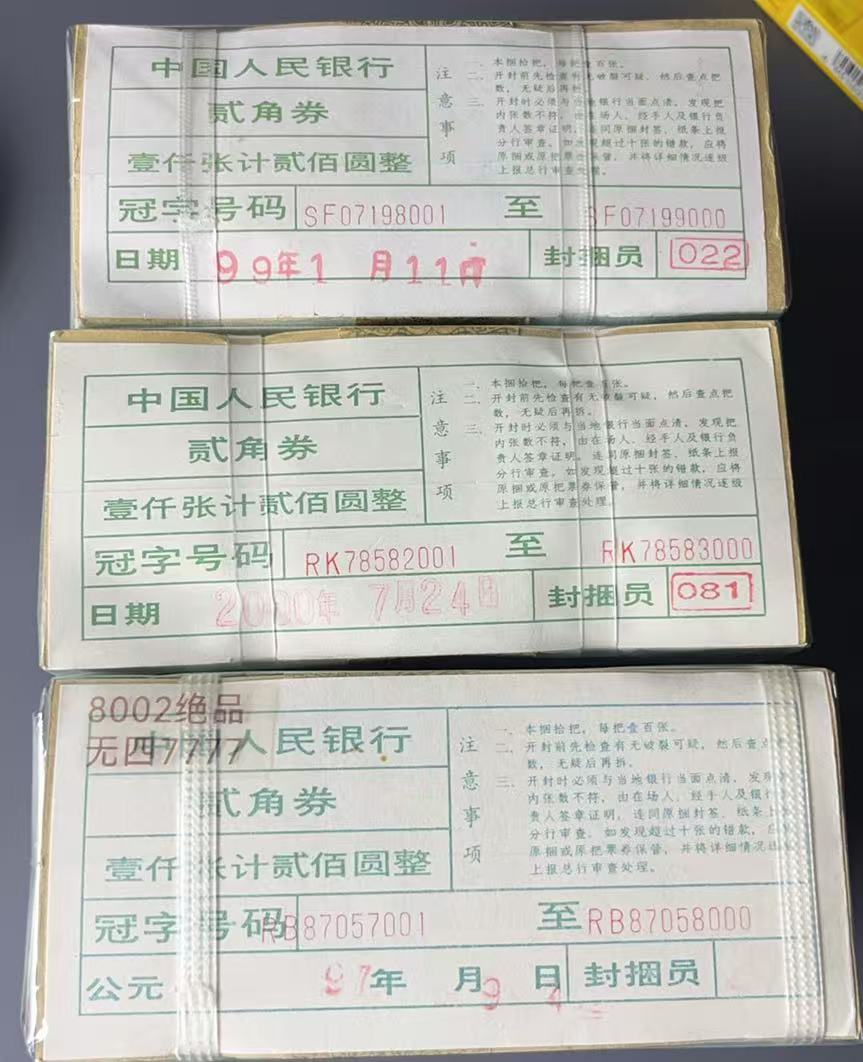 中国人民银行
贰角券
壹仟张计贰佰圆整
注意事项
一、本捆拾把，每把壹百张。
二、开封前先检查有无破裂可疑，然后查点把
数，无疑后再拆。
三、开封时必须与当地银行当面点清，发现把
内张数不符，由在场人、经手人及银行负
责人签章证明，连同原捆封签、纸条上报
分行审查。如发现超过十张的错款，应将
原捆或原把票券保管，并将详细情况逐级
上报总行审查处理。
冠字号码 SF07198001 至 SF07199000
日期 99年1月11日 封捆员 022
中国人民银行
贰角券
壹仟张计贰佰圆整
注意事项
一、本捆拾把，每把壹百张。
二、开封前先检查有无破裂可疑，然后查点把
数，无疑后再拆。
三、开封时必须与当地银行当面点清，发现把
内张数不符，由在场人、经手人及银行负
责人签章证明，连同原捆封签、纸条上报
分行审查。如发现超过十张的错款，应将
原捆或原把票券保管，并将详细情况逐级
上报总行审查处理。
冠字号码 RK78582001 至 RK78583000
日期 2000年7月24日 封捆员 081
8002绝品
无四7777
中国人民银行
贰角券
壹仟张计贰佰圆整
注意事项
一、本捆拾把，每把壹百张。
二、开封前先检查有无破裂可疑，然后查点
数，无疑后再拆。
三、开封时必须与当地银行当面点清，发现
内张数不符，由在场人、经手人及银行
责人签章证明，连同原捆封签、纸条上
分行审查。如发现超过十张的错款，
原捆或原把票券保管，并将详细情况
上报总行审查处理。
冠字号码 RB87057001 至 RB87058000
公元 97年 月9 日4 封捆员